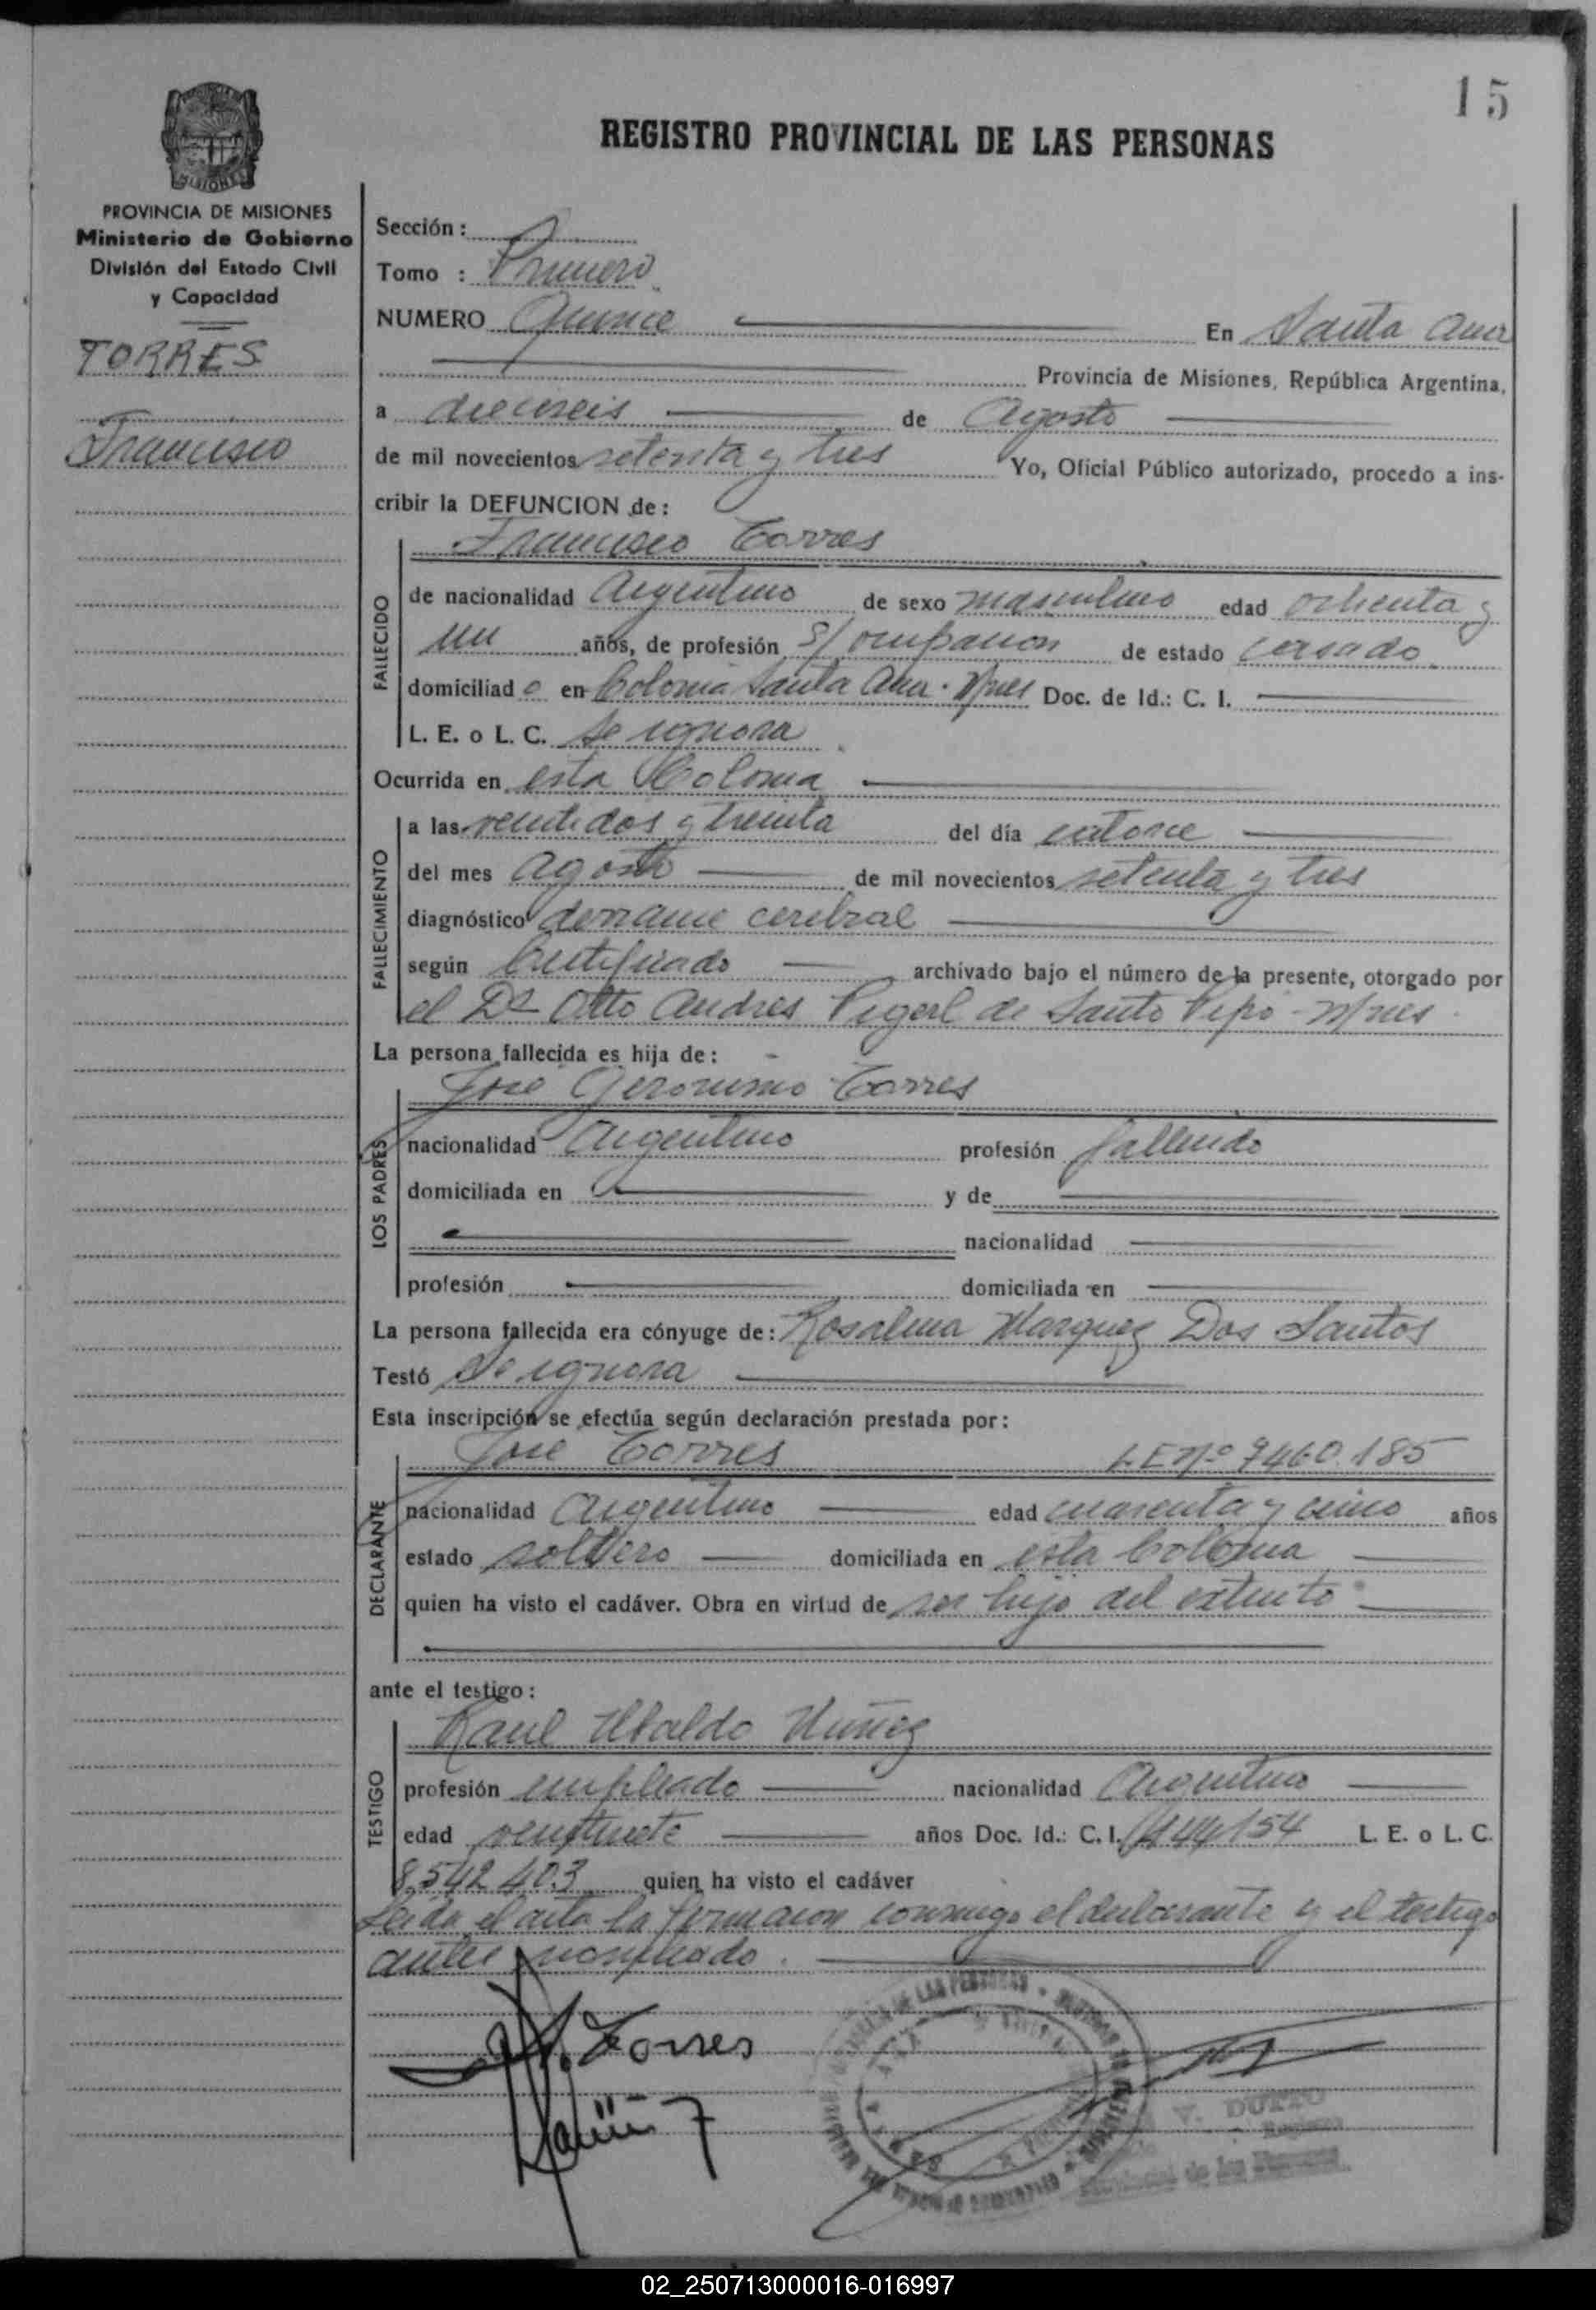 15
REGISTRO PROVINCIAL DE LAS PERSONAS
MISIONES
PROVINCIA DE MISIONES
Ministerio de Gobierno
División del Estado Civil
y Capacidad
TORRES
Francisco
Sección :
Tomo : Primero
NUMERO Quince En Santa Ana
Provincia de Misiones, República Argentina,
a dieciseis de Agosto
de mil novecientos setenta y tres Yo, Oficial Público autorizado, procedo a ins-
cribir la DEFUNCION de :
Francisco Torres
FALLECIDO
de nacionalidad Argentino de sexo masculino edad ochenta y
un años, de profesión s/ ocupacion de estado casado
domiciliado en Colonia Santa Ana - Mnes Doc. de Id.: C. I.
L. E. o L. C. se ignora
Ocurrida en esta Colonia
FALLECIMIENTO
a las veintidos y treinta del día catorce
del mes agosto de mil novecientos setenta y tres
diagnóstico derrame cerebral
según Certificado archivado bajo el número de la presente, otorgado por
el Dr Otto Andres de Santo Pipo - Mnes
La persona fallecida es hija de :
Jose Geronimo Torres
LOS PADRES
nacionalidad Argentino profesión fallecido
domiciliada en y de
nacionalidad
profesión domiciliada en
La persona fallecida era cónyuge de : Rosalina Marquez Dos Santos
Testó Se ignora
Esta inscripción se efectúa según declaración prestada por :
Jose Torres L.E.Nº 7460.185
DECLARANTE
nacionalidad Argentino edad cuarenta y cinco años
estado soltero domiciliada en esta Colonia
quien ha visto el cadáver. Obra en virtud de ser hijo del extinto
ante el testigo :
Raul Ubaldo Nuñez
TESTIGO
profesión empleado nacionalidad Argentino
edad veintisiete años Doc. Id.: C. I. 144154 L. E. o L. C.
8.542.403 quien ha visto el cadáver
Leida el acta la firmaron conmigo el declarante y el testigo
antes nombrado.
J. Torres
V. DUTTO
Provincial de las Personas
02_250713000016-016997